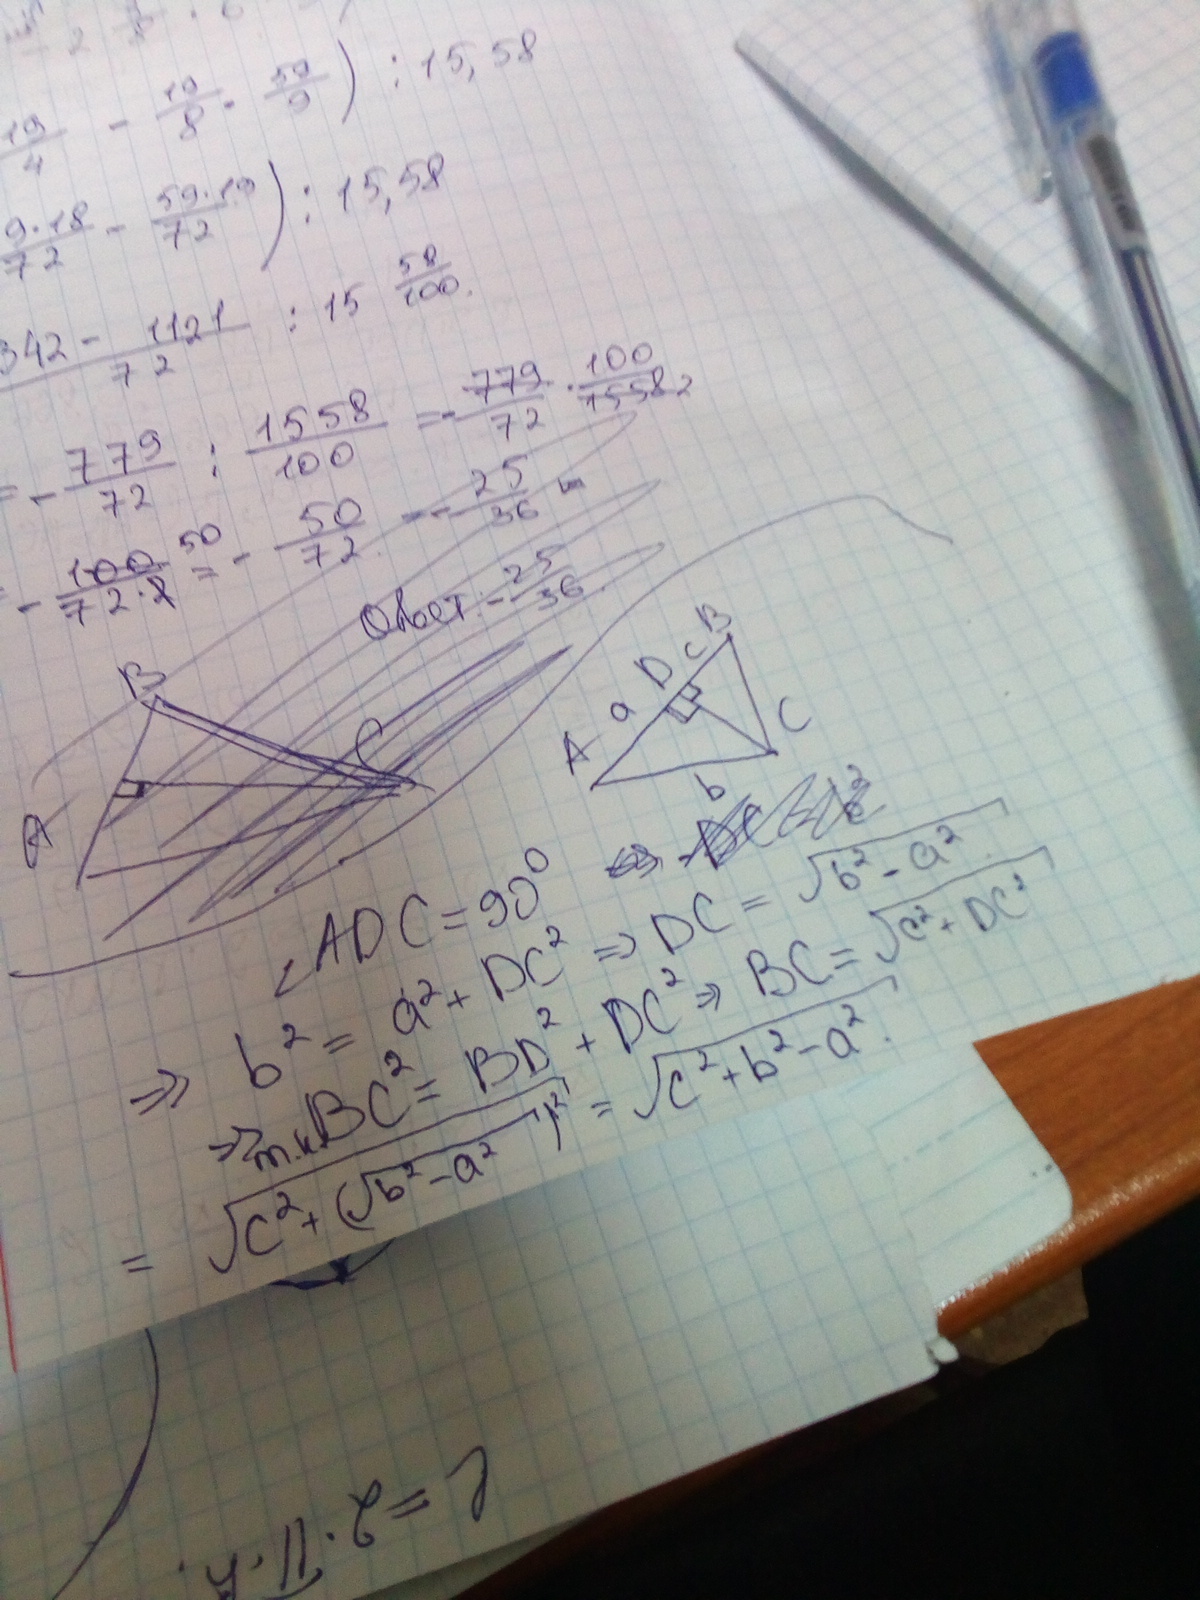 19/4 - 19/8 · 59/9) : 15,58
9·18/72 - 59·19/72) : 15,58
342 - 1121/72 : 15 58/100.
= - 779/72 : 1558/100 = - 779/72 · 100/15582
- 100/72·2 50 = - 50/72 = - 25/36
Ответ: - 25/36.
B C A
B c D a A C b
∠ADC = 90°
⇒ b² = a² + DC² ⇒ DC = √b² - a².
⇒ т.к. BC² = BD² + DC² ⇒ BC = √c² + DC²
= √c² + (√b² - a²)² = √c² + b² - a².
= 2·П·